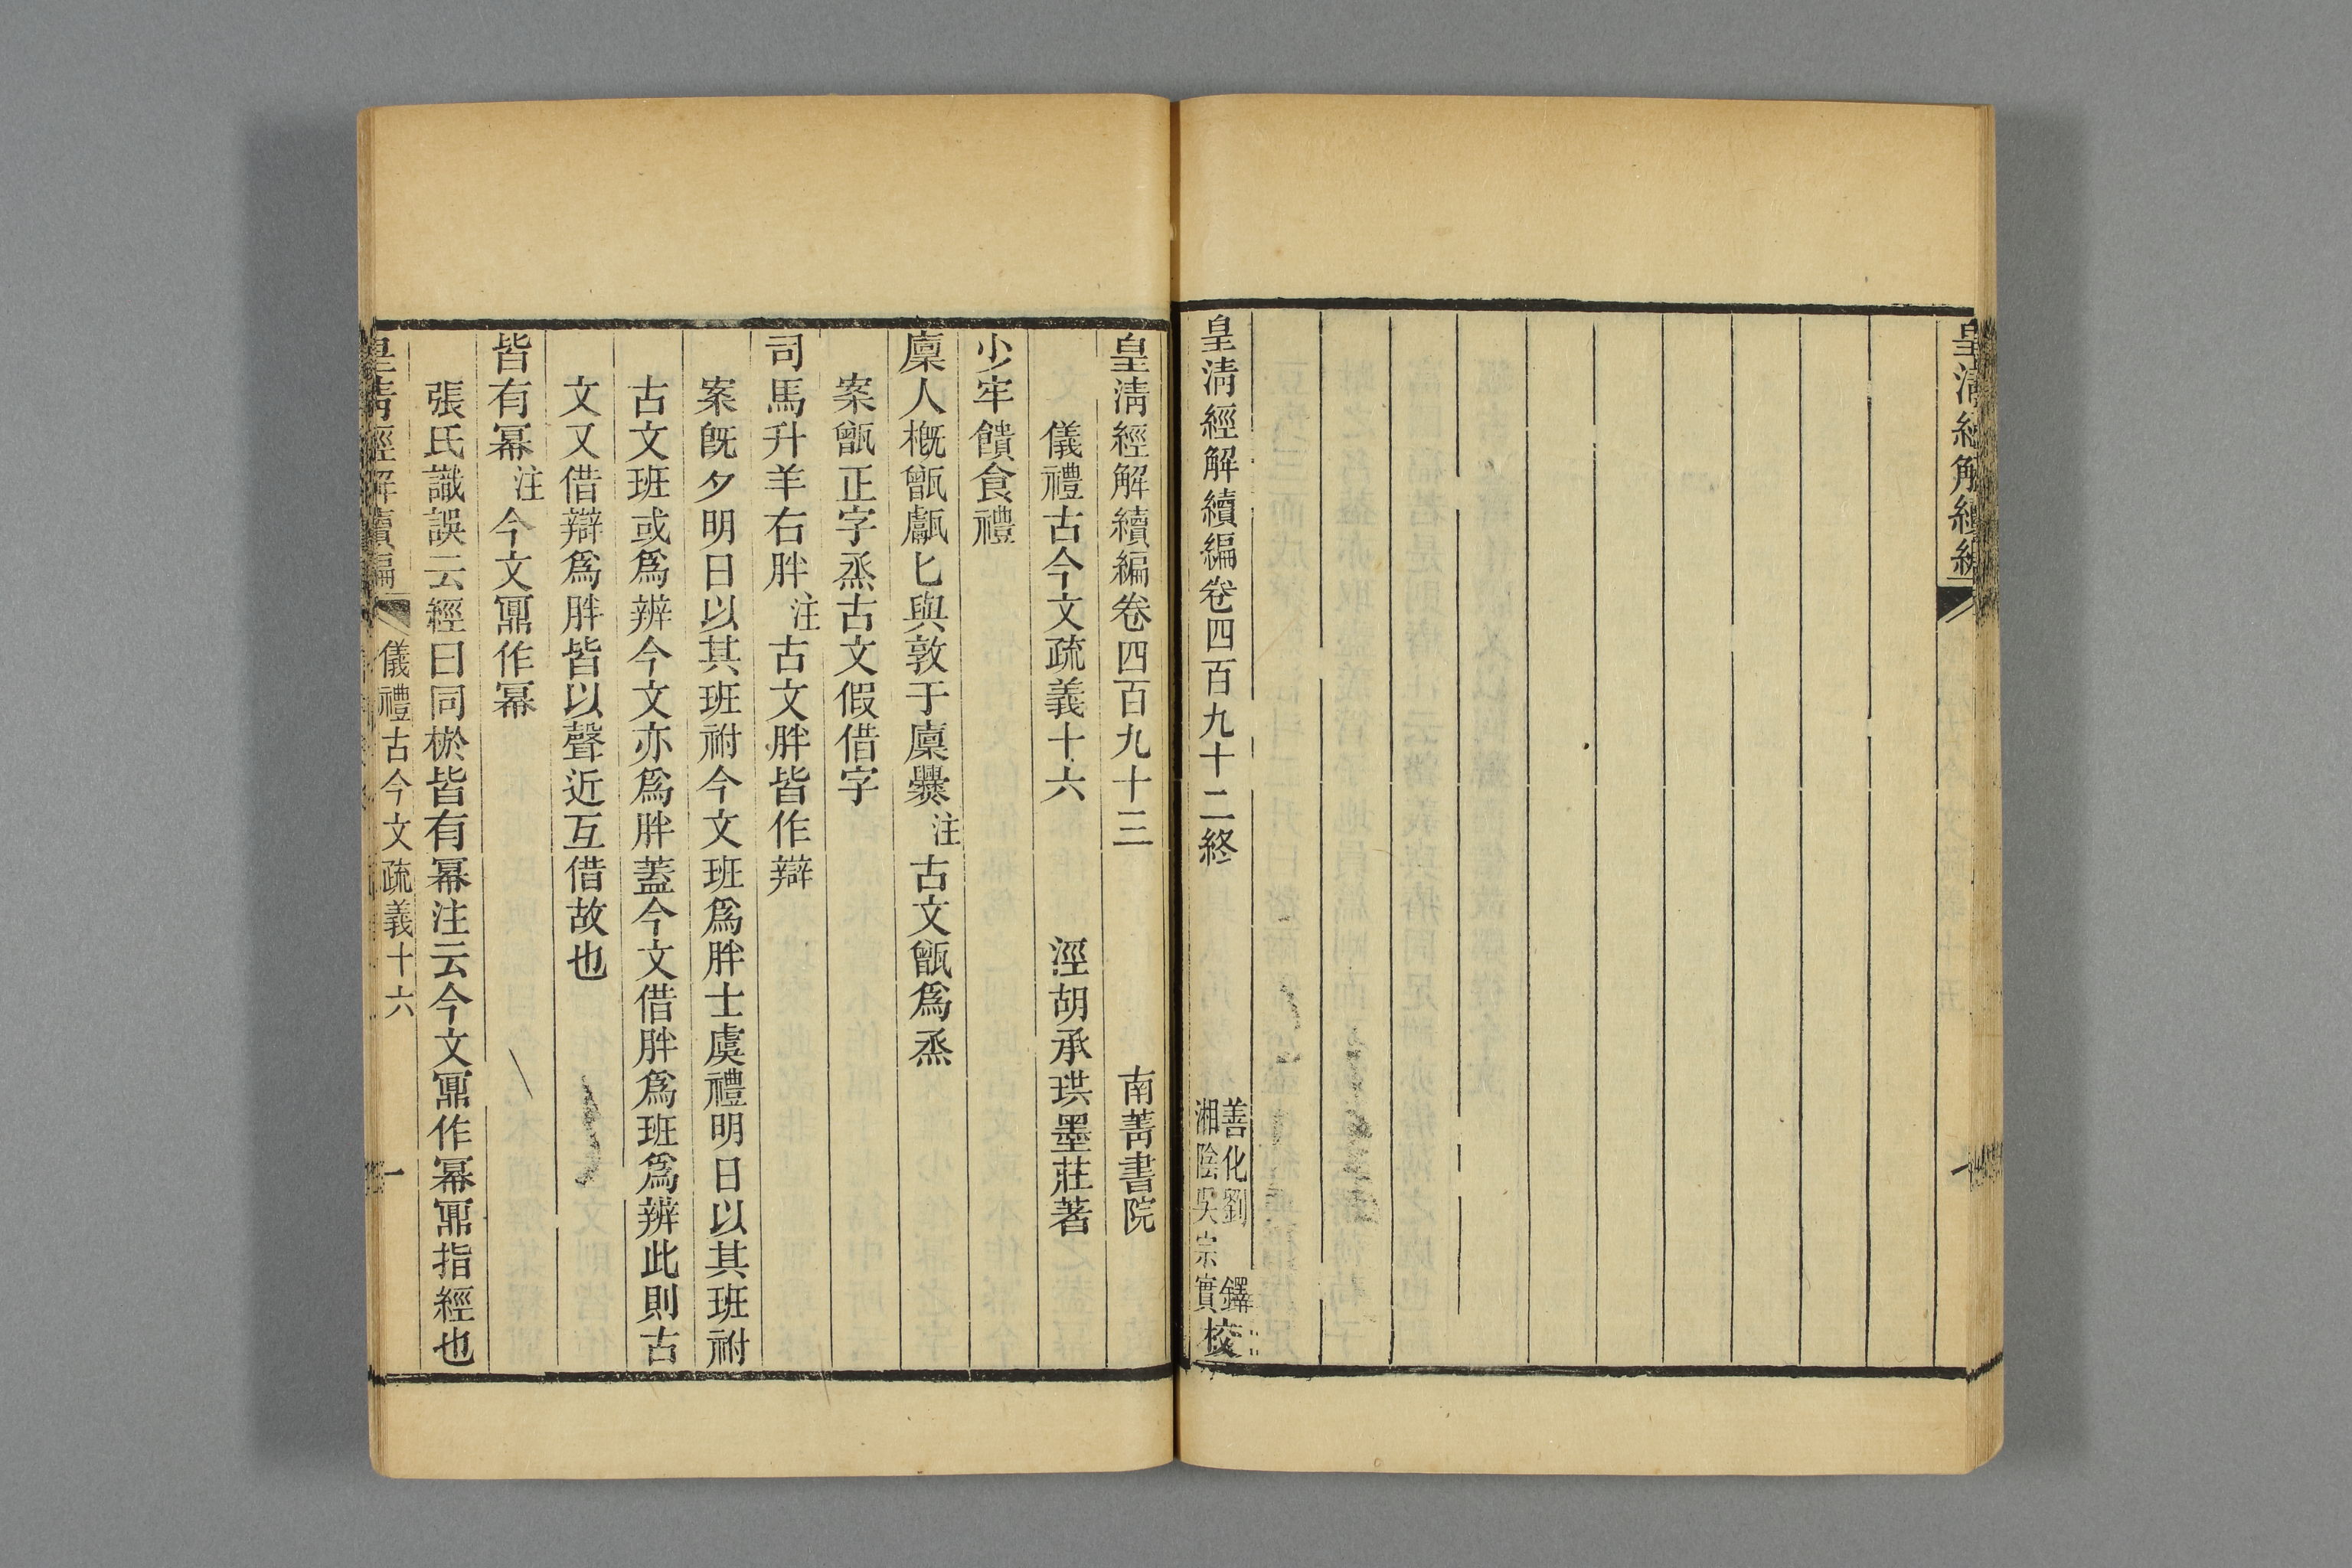 皇清經解續編
皇清經解續編卷四百九十二終
善化劉鐸
湘陰吳宗實校
皇清經解續編卷四百九十三 南菁書院
儀禮古今文疏義十六 涇胡承珙墨莊著
少牢饋食禮
廩人概甑甗匕與敦于廩爨注古文甑爲烝
案甑正字烝古文假借字
司馬升羊右胖注古文胖皆作辯
案旣夕明日以其班祔今文班爲胖士虞禮明日以其班祔
古文班或爲辨今文亦爲胖蓋今文借胖爲班爲辨此則古
文又借辯爲胖皆以聲近互借故也
皆有冪注今文鼏作冪
張氏識誤云經曰同棜皆有冪注云今文鼏作冪鼏指經也
皇清經解續編 儀禮古今文疏義十六 一